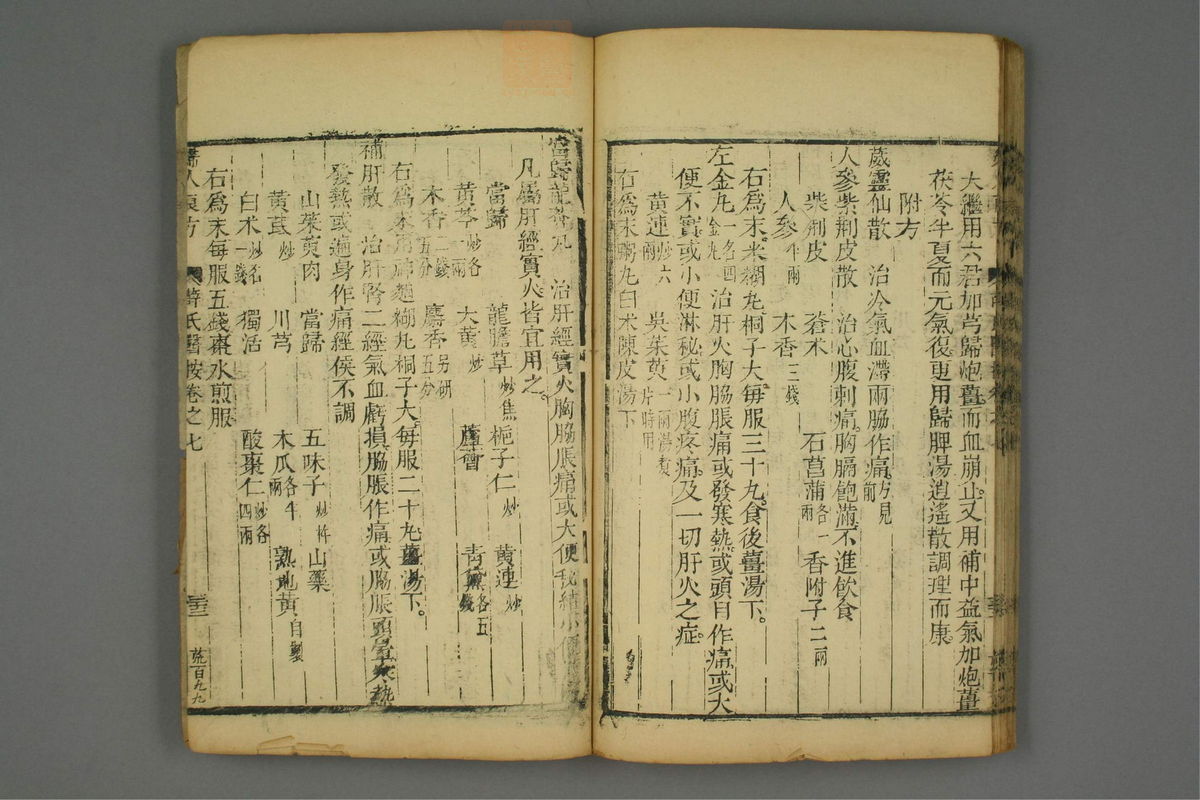 大繼用六君加芎歸炮薑而血崩止又用補中益氣加炮薑
茯苓半夏而元氣復更用歸脾湯逍遙散調理而康
附方
葳靈仙散 治冷氣血滯兩脇作痛方見前
人參紫荆皮散 治心腹刺痛胸膈飽滿不進飲食
紫荆皮 蒼朮 石菖蒲各一兩 香附子二兩
人參半兩 木香三錢
右爲末米糊丸桐子大每服三十丸食後薑湯下
左金丸一名四金丸 治肝火胸脇脹痛或發寒熱或頭目作痛或大
便不實或小便淋秘或小腹疼痛及一切肝火之症
黃連炒六兩 吳茱萸一兩湯煮片時用
右爲末粥丸白朮陳皮湯下
當歸龍薈丸 治肝經實火胸脇脹痛或大便秘結小便
凡屬肝經實火皆宜用之
當歸 龍膽草炒焦 梔子仁炒 黃連炒
黃芩炒各一兩 大黃炒 蘆薈 青黛各五錢
木香二錢五分 麝香另研五分
右爲末用神麯糊丸桐子大每服二十丸薑湯下
補肝散 治肝腎二經氣血虧損脇脹作痛或脇脹頭暈寒熱
發熱或遍身作痛經候不調
山茱萸肉 當歸 五味子炒杵 山藥
黃芪炒 川芎 木瓜各半兩 熟地黃自製
白朮炒各一錢 獨活 酸棗仁炒各四兩
右爲末每服五錢棗水煎服
婦人良方 薛氏醫按卷之七